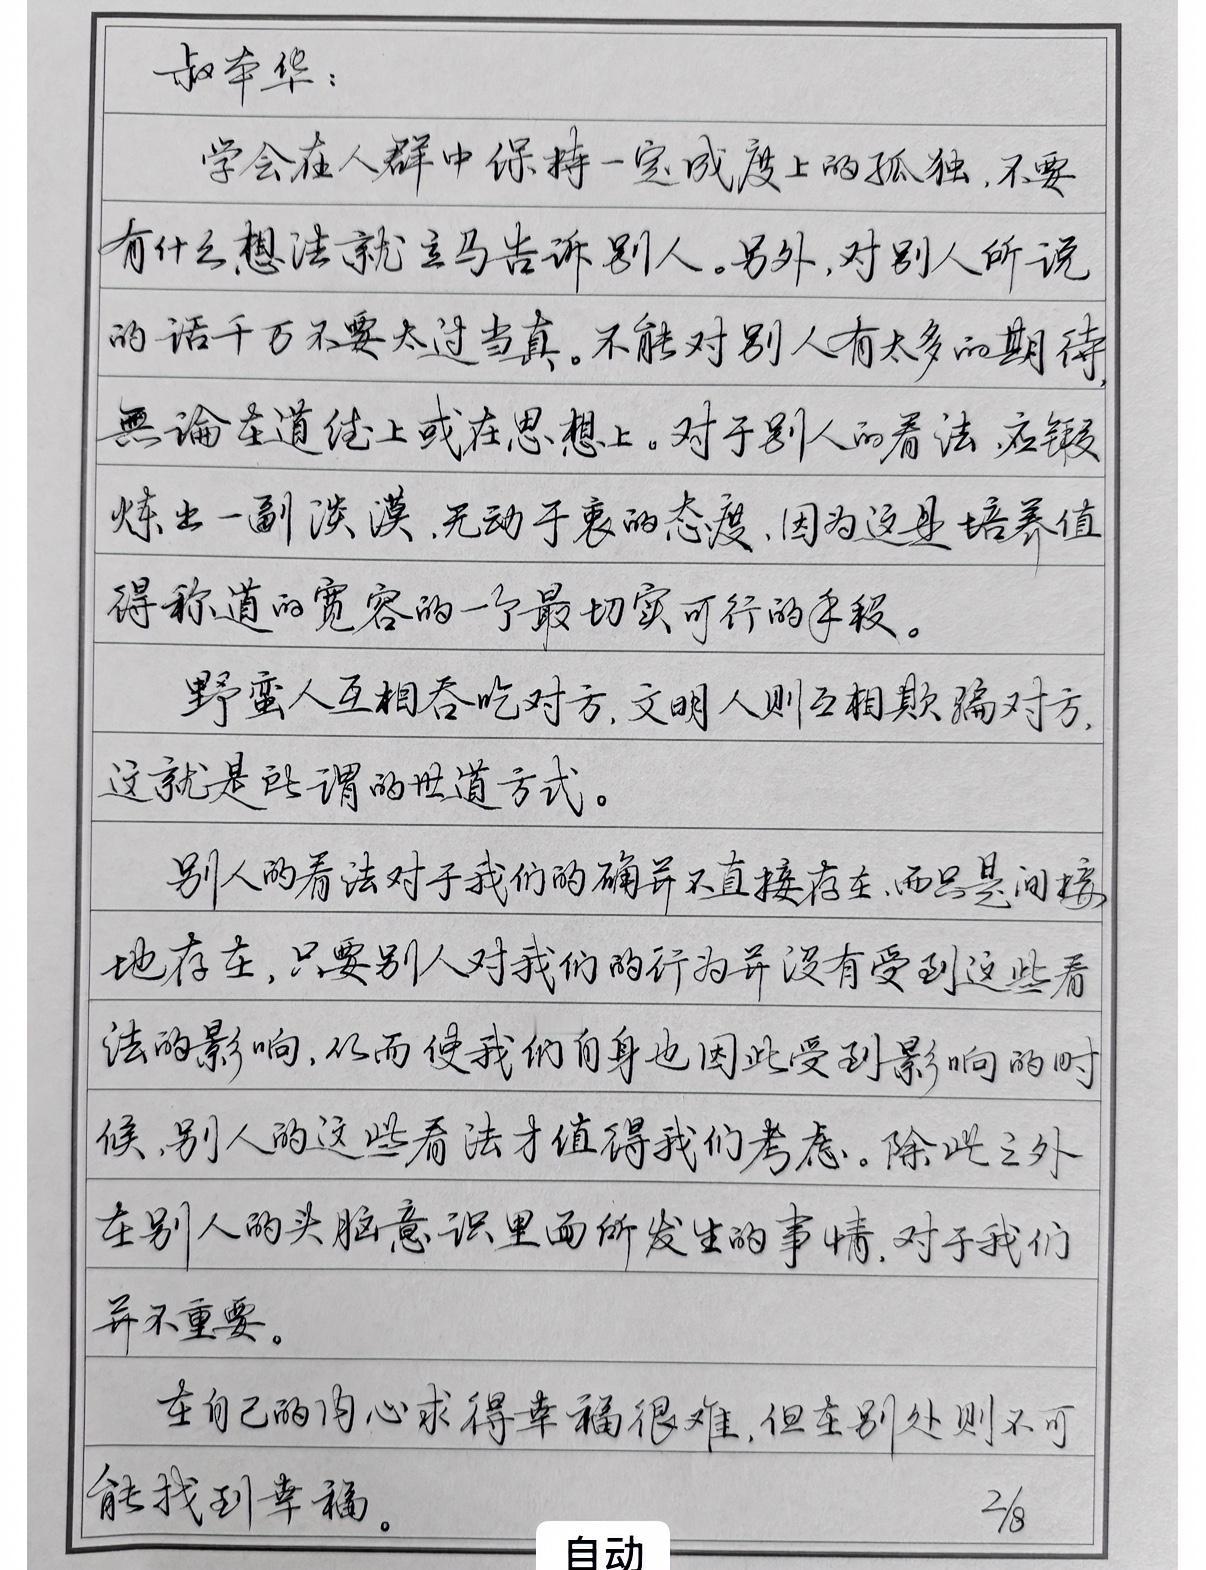 叔本华：
学会在人群中保持一定成度上的孤独，不要
有什么想法就立马告诉别人。另外，对别人所说
的话千万不要太过当真。不能对别人有太多的期待，
無論在道德上或在思想上。对于别人的看法，应锻
炼出一副淡漠、无动于衷的态度，因为这是培养值
得称道的宽容的一个最切实可行的手段。
野蛮人互相吞吃对方，文明人则互相欺骗对方，
这就是所谓的世道方式。
别人的看法对于我们的确并不直接存在，而只是间接
地存在，只要别人对我们的行为并没有受到这些看
法的影响，从而使我们自身也因此受到影响的时
候，别人的这些看法才值得我们考虑。除此之外
在别人的头脑意识里面所发生的事情，对于我们
并不重要。
在自己的内心求得幸福很难，但在别处则不可
能找到幸福。
2/8
自动